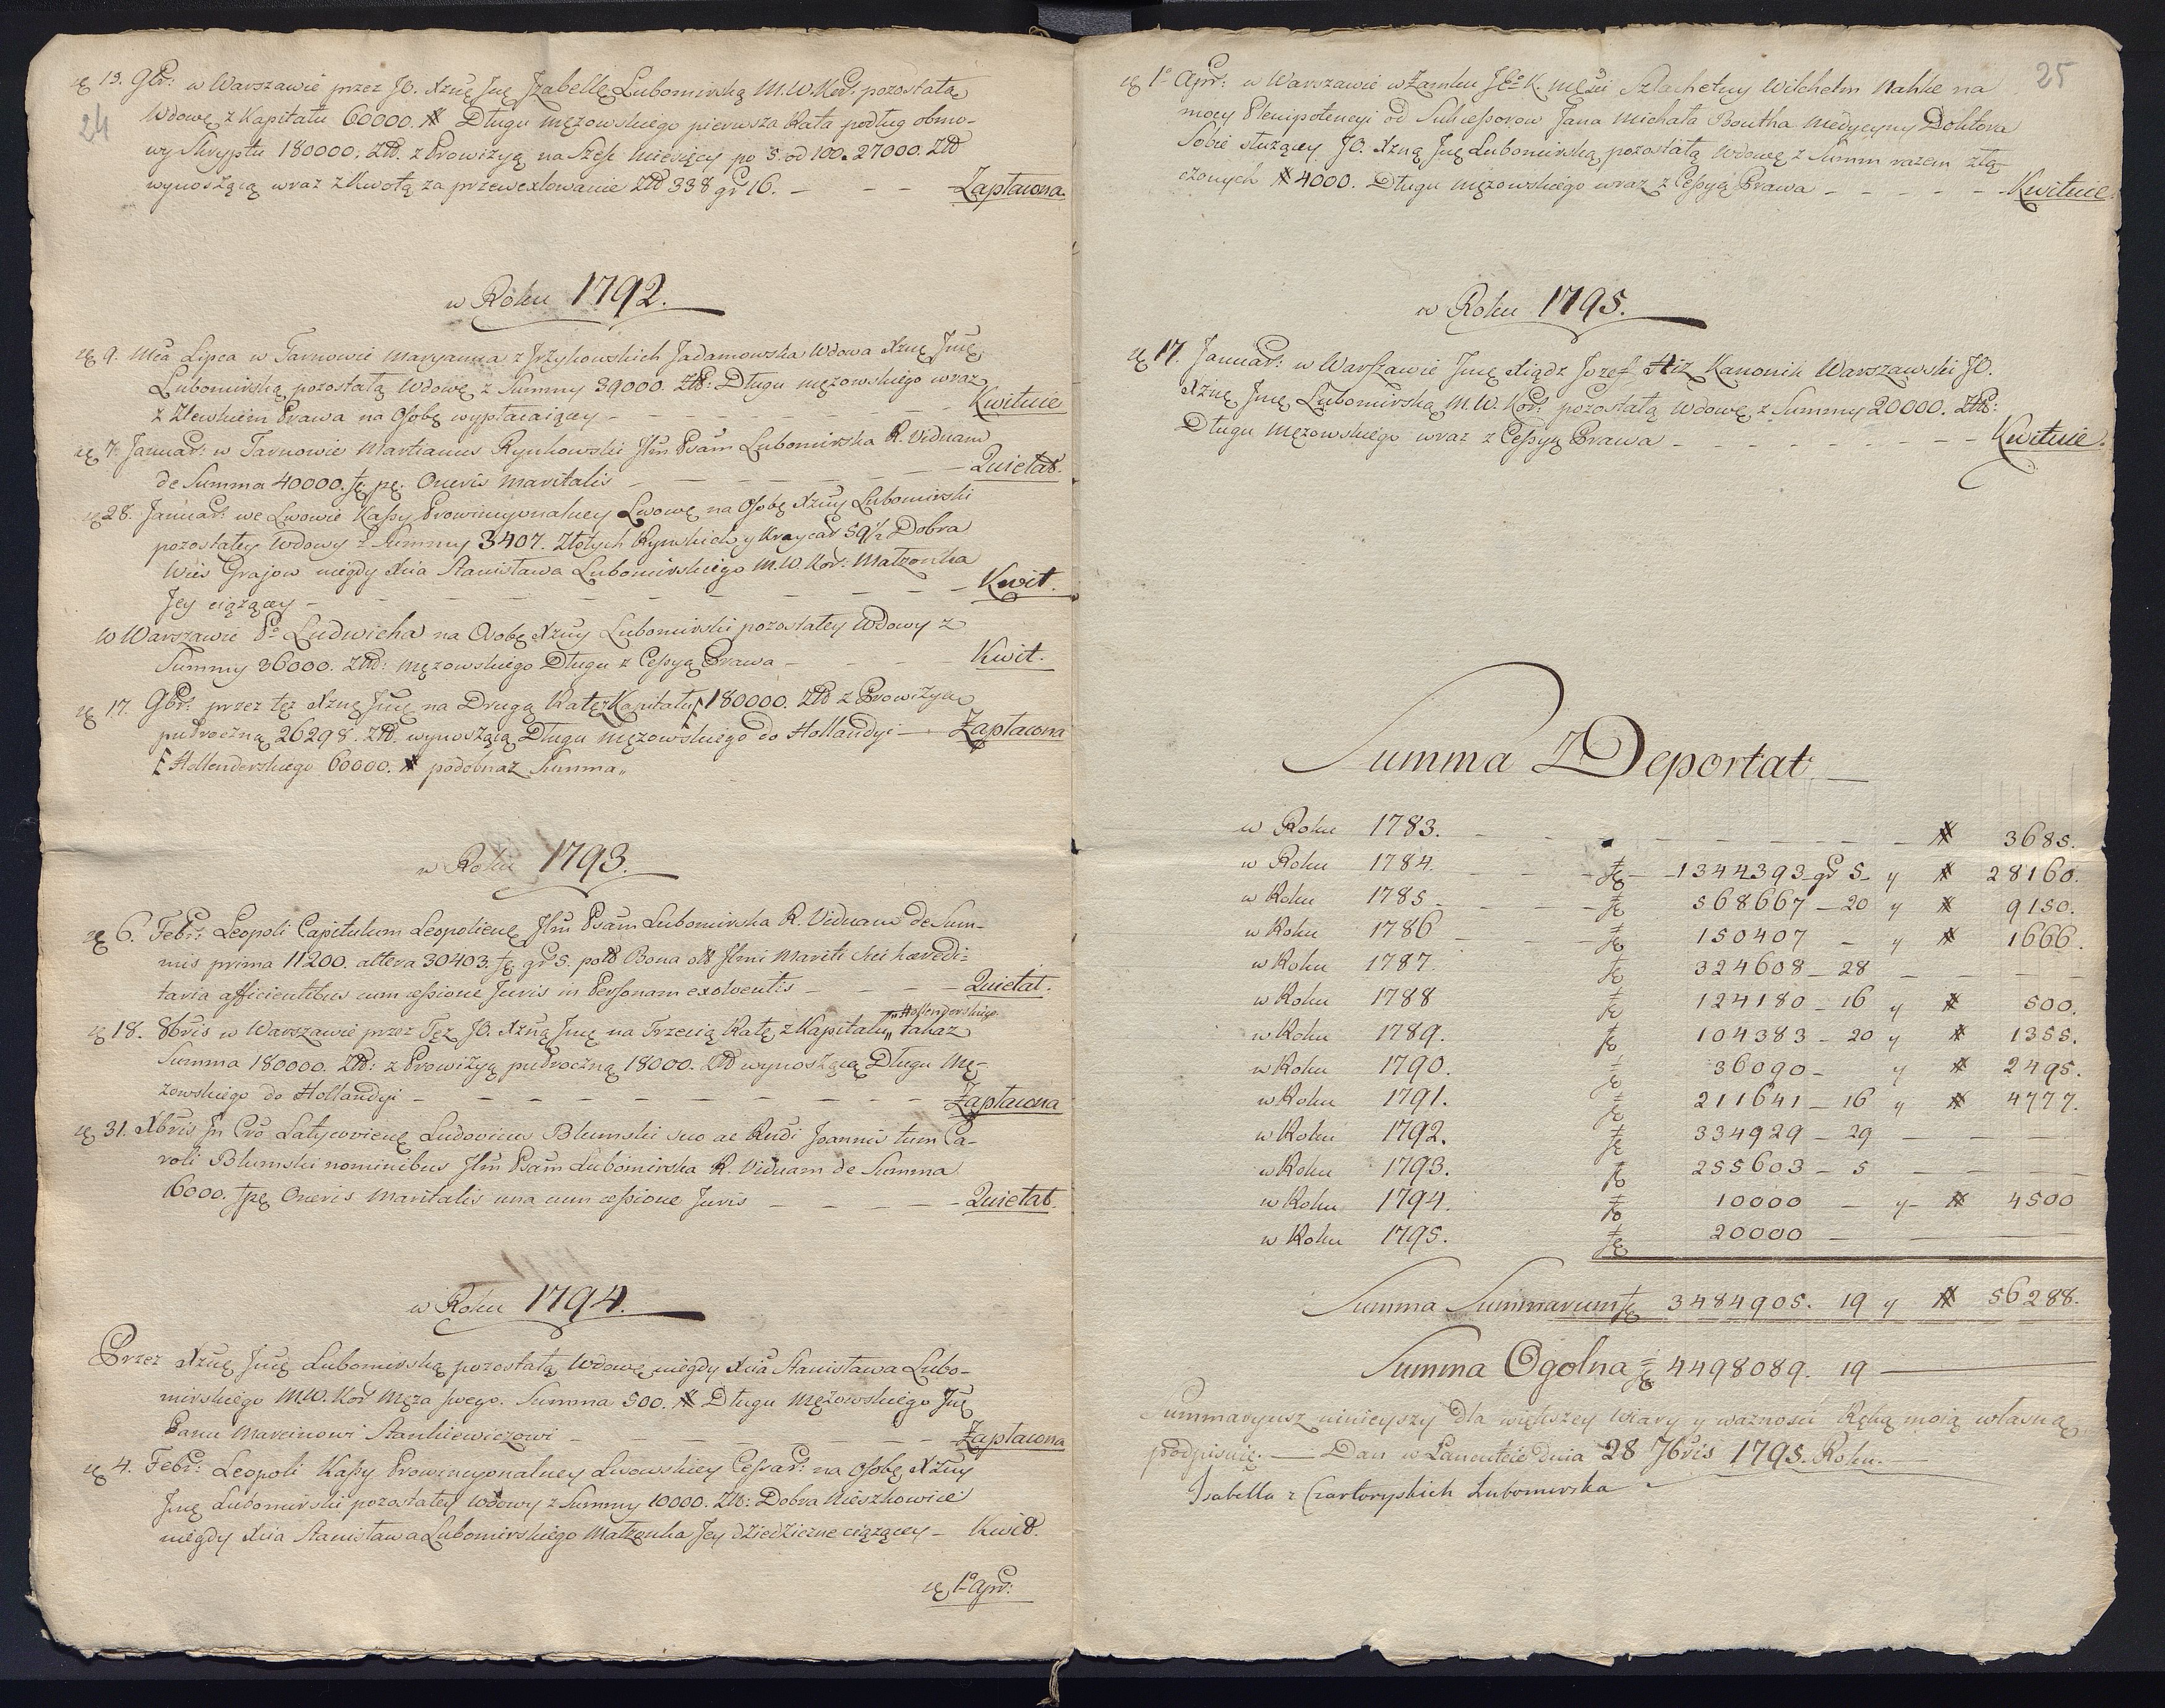 24
13. 9br: w Warszawie przez JO. Xznę Jmę Izabellę Lubomirską M.W.Kor. pozostałą
Wdowę z Kapitału 60000. # Długu mężowskiego pierwsza Rata podług obmo-
wy Skryptu 180000. Złł. z Prowizyą na Sześć Miesięcy po 5. od 100. 27000. Złł
wynoszącą wraz z Kwotą za przewexlowanie Złł 338 gr 16. — Zapłacona
w Roku 1792.
9. Mca Lipca w Tarnowie Maryanna z Jrzykowskich Jadamowska Wdowa Xznę Jmę
Lubomirską pozostałą Wdowę z Summy 39000. Złł: Długu mężowskiego wraz
z Zlewkiem Prawa na Osobę wypłacaiącey — Kwituie
7. Januar: w Tarnowie Martianus Rynkowski Jllm Psam Lubomirska R. Viduam
de Summa 40000. fl. pl. Oneris Maritalis — Quietat.
28. Januar: we Lwowie Kassy Prowincyonalney Lwow. na Osobę Xzny Lubomirski
pozostałey Wdowy z Summy 3407. Złotych Rynskich y Kraycar 59½ Dobra
Wieś Grajow niegdy Xcia Stanisława Lubomirskiego M.W.Kor: Małżonka
Jey ciążącey — Kwit.
W Warszawie P. Ludwicha na Osobę Xzny Lubomirski pozostałey Wdowy z
Summy 36000. Złł: mężowskiego Długu z Cessyą Prawa — Kwit.
17. 9br: przez tęż Xznę Jmę na Drugą Ratę z Kapitału 180000. Złł z Prowizya
pułroczną 26298. Złł. wynoszącą Długu mężowskiego do Hollandyi — Zapłacona
Hollenderskiego 60000. # podobnaż Summa
w Roku 1793.
6. Febr: Leopoli Capitulum Leopoliens Jllm Psam Lubomirska R. Viduam de Sum-
mis prima 11200. altera 30403. fl. gr 5. Bona olt Jllmi Mariti sui haeredi-
taria afficientibus cum cessione Juris in Personam exolventis — Quietat.
18. 8bris w Warszawie przez Tęż JO. Xzną Jmę na Trzecią Ratę z Kapitału Hollenderskiego takaż
Summa 180000. Złł: z Prowizyą pułroczną 18000. Złł wynoszącą Długu Mę-
żowskiego do Hollandyi — Zapłacona
31. Xbris Jn Cro Latycoviens Ludovicus Blumski suo ac Rndi Joannis tum Ca-
roli Blumski nominibus Jllm Psam Lubomirska R. Viduam de Summa
16000. fl. pl. Oneris Maritalis una cum cessione Juris — Quietat.
w Roku 1794.
Przez Xznę Jmę Lubomirską pozostałą Wdowę niegdy Xcia Stanisława Lubo-
mirskiego M.W.Kor Męża swego. Summa 500. # Długu Mężowskiego Jmę
Panu Marcinowi Stankiewiczowi — Zapłacona
4. Febr: Leopoli Kassy Prowincyonalney Lwowskiey Cessar: na Osobę Xzny
Jmę Lubomirski pozostałey Wdowy z Summy 10000. Złł: Dobra Nieszkowice
niegdy Xcia Stanisława Lubomirskiego Małżonka Jey dziedziczne ciążącey — Kwit.
1ª Apr:
25
1ª Apr: w Warszawie w Zamku JK. Szlachetny Wilchelm Nahke na
mocy Plenipotencyi od Sukcessorow Jana Michała Boutha Medycyny Doktora
Sobie służącey JO. Xzną Jmę Lubomirską pozostałą Wdowę z Summ razem złą-
czonych # 4000. Długu mężowskiego wraz z Cessyą Prawa — Kwituie
w Roku 1795.
17. Januar: w Warszawie Jmę Xiądz Jozef Hiż Kanonik Warszawski JO.
Xznę Jmę Lubomirską M.W.Kor: pozostałą Wdowę z Summy 20000. Złł:
Długu Mężowskiego wraz z Cessyą Prawa — Kwituie.
Summa Z Deportat
w Roku 1783. — # 3685.
w Roku 1784. — fl. 1344393 gr 5 y # 28160.
w Roku 1785. — fl. 568667 — 20 y # 9150.
w Roku 1786 — fl. 150407 — y # 1666.
w Roku 1787. fl. 324608 — 28 —
w Roku 1788 fl. 124180 — 16 y # 500.
w Roku 1789. fl. 104383 — 20 y # 1355.
w Roku 1790. fl. 36090 — y # 2495.
w Roku 1791. fl. 211641 — 16 y # 4777.
w Roku 1792. fl. 334929 — 29 —
w Roku 1793. fl. 255603 — 5 —
w Roku 1794. fl. 10000 — y — # 4500
w Roku 1795. fl. 20000 —
Summa Summarum fl. 3484905. 19 y # 56288.
Summa Ogolna fl. 4498089. 19 —
Summaryusz ninieyszy dla większey wiary y ważności Ręką moią własną
podpisuię. — Dan w Lancutcie Dnia 28 7bris 1795. Roku. —
Isabella z Czartoryskich Lubomirska